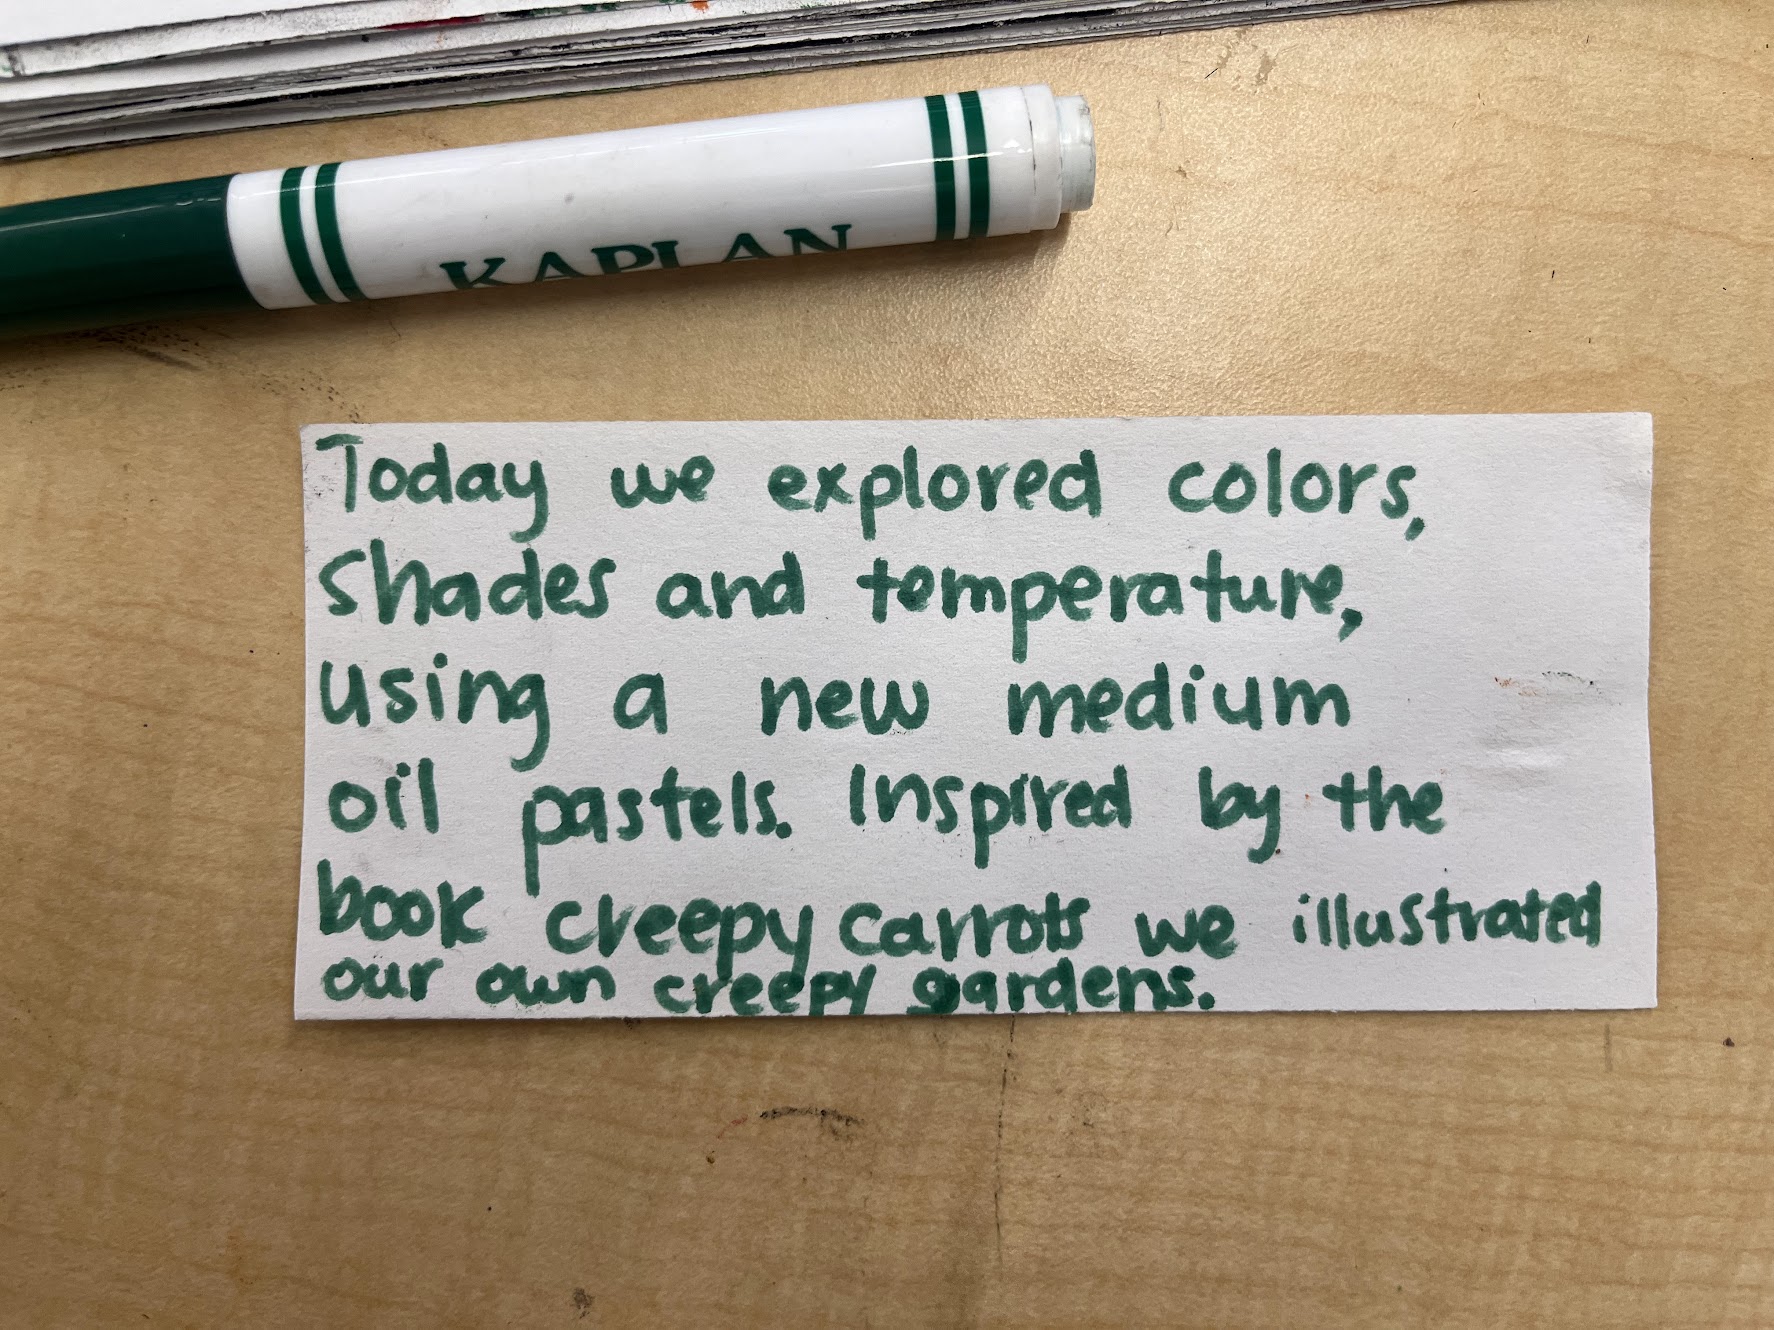 KAPLAN
Today we explored colors,
Shades and temperature,
using a new medium
oil pastels. Inspired by the
book creepy carrots we illustrated
our own creepy gardens.